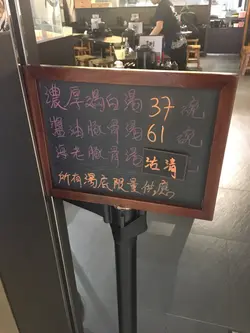 濃厚鷄白湯37碗
醬油豚骨湯61碗
海老豚骨湯沽清
所有湯底限量供應